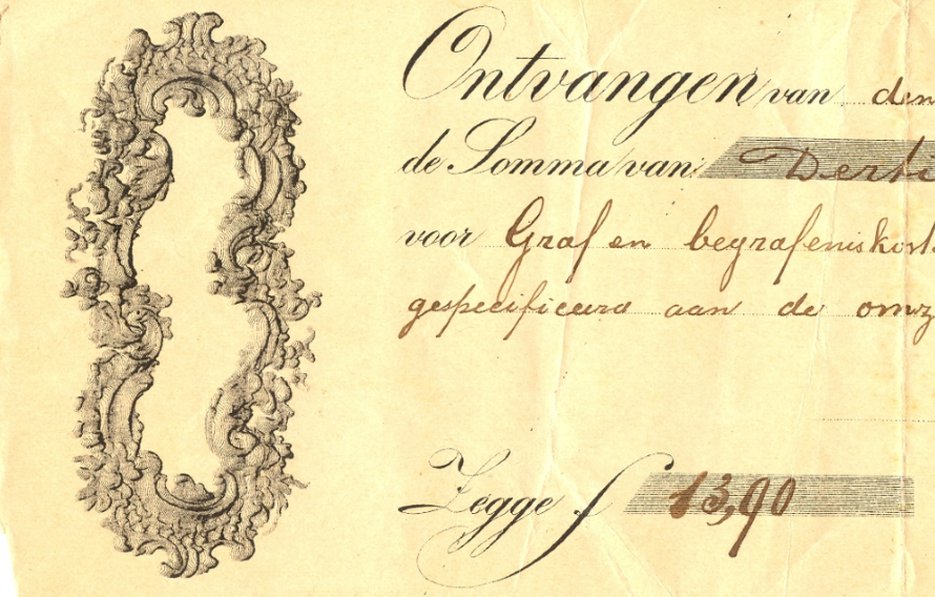 Ontvangen van den
de Somma van Derti
voor Graf en begrafeniskost
gespecificeerd aan de omz
Zegge f 13,90